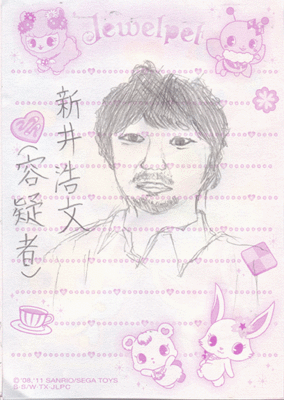 Jewelpet
新井浩文
(容疑者)
© '08, '11 SANRIO/SEGA TOYS
S·S/W·TX·JLPC